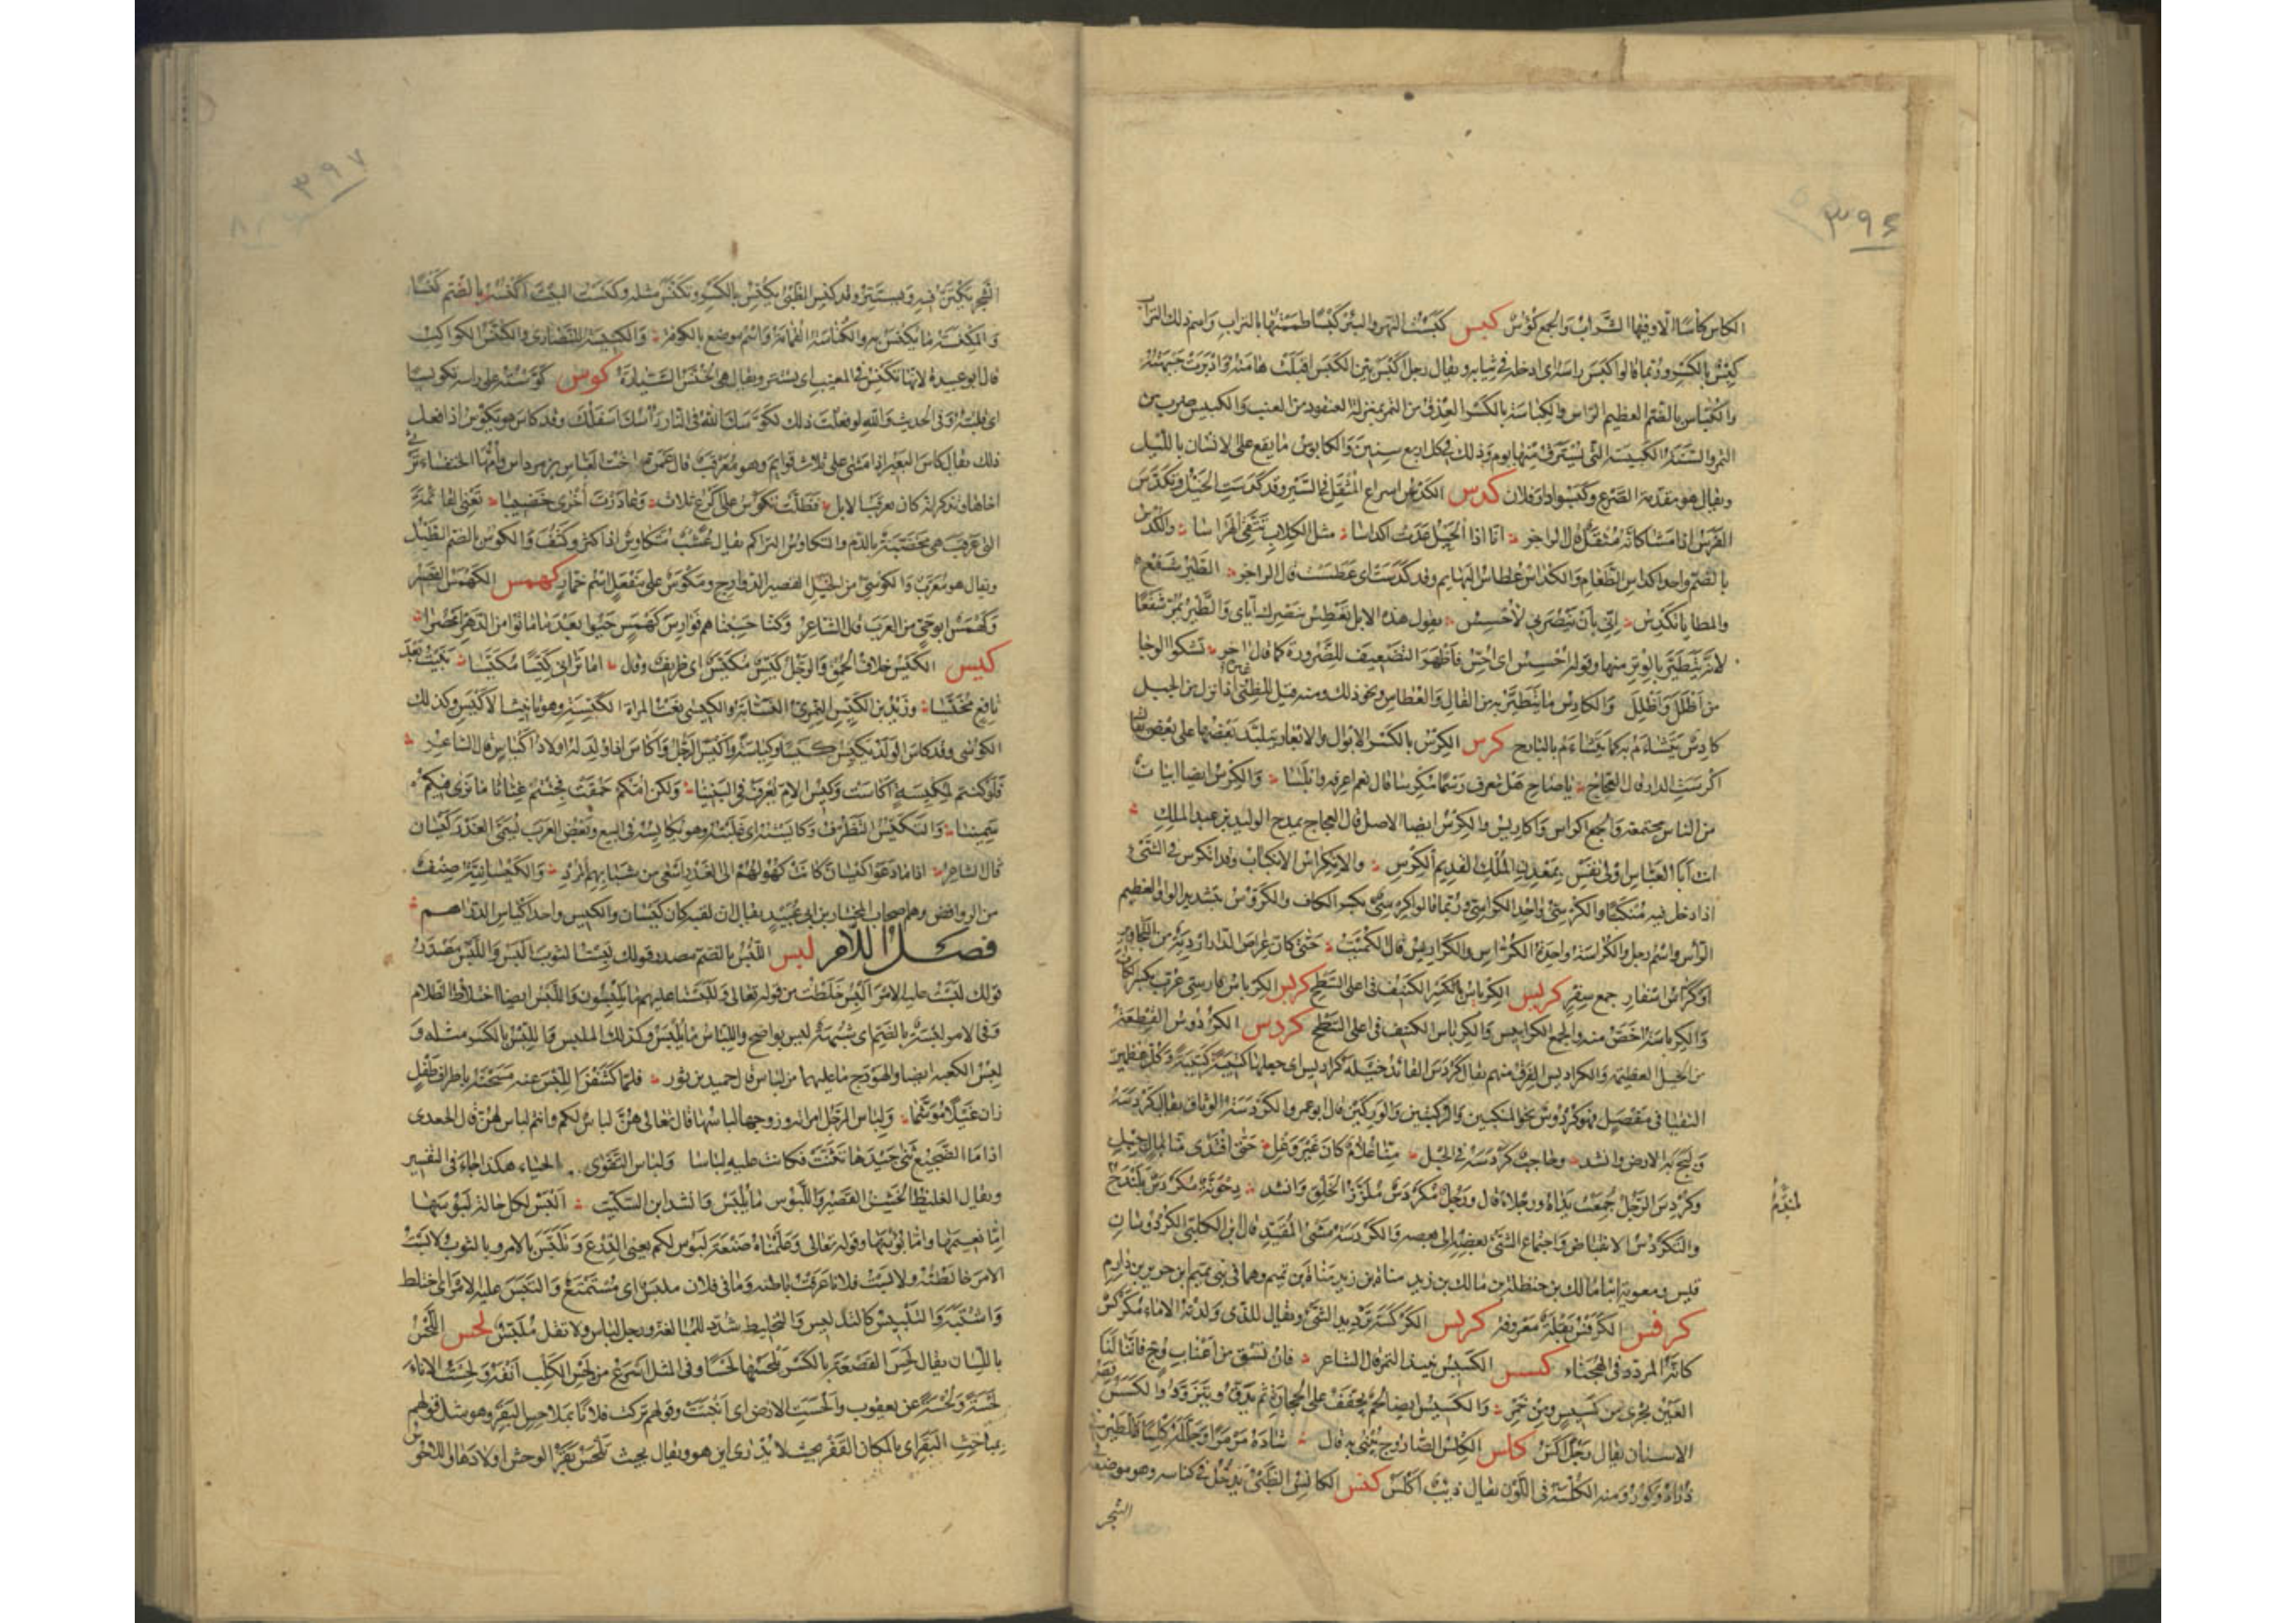 ٣٩۶
الكاس كأسا الا وفيها الشراب والجمع كؤوس كبس كبست النهر والبئر كبسا طممتها بالتراب واسم ذلك التراب
كبس بالكسر وربما قالوا كبس راسه اى ادخله في ثيابه ويقال رجل اكبس بين الكبس اقبلت هامته وادبرت جبهته
والكباس بالضم العظيم الراس والكباسة بالكسر العذق من التمر بمنزلة العنقود من العنب والكبيس ضرب من
التمر والسنة الكبيسة التي يسترق منها يوم وذلك في كل اربع سنين والكابوس ما يقع على الانسان بالليل
ويقال هو مقدمة الصرع وكبسوا دار فلان كدس الكدس اسراع المثقل في السير وقد كدست الخيل وتكدس
الفرس اذا مشى كانه مثقل قال الراجز انا اذا الخيل عدت اكداسا مثل الكلاب تتقي الهراسا والكدس
بالضم واحد اكداس الطعام والكداس عطاس البهايم وقد كدست اى عطست قال الراجز الطير شفع
والمطايا تكدس اني بان تنصرني لاحسس يقول هذه الابل تعطس بنصرك اياى والطير تمر شفعا
لانه يتطير بالوتر منها وقوله احسس اى احس فاظهر التضعيف للضرورة كما قال اخر تشكو الوجا
من اظلل واظلل والكادس ما يتطير به من الفال والعطاس ونحو ذلك ومنه قيل للظبي اذا نزل من الجبل
كادس يتشاءم به كما يتشاءم بالبارح كرس الكرس بالكسر الابوال والابعار يتلبد بعضها على بعض يقال
اكرست الدار قال العجاج يا صاح هل تعرف رسما مكرسا قال نعم اعرفه وابلسا والكرس ايضا ابيات
من الناس مجتمعة والجمع اكراس واكاريس والكرس ايضا الاصل قال العجاج يمدح الوليد بن عبد الملك
انت ابا العباس اولى نفس بمعدن الملك القديم الكرس والانكراس الانكباب وقد انكرس في الشئ
اذا دخل فيه منكبا والكرسي واحد الكراسي وربما قالوا كرسي بكسر الكاف والكروس بتشديد الواو العظيم
الرأس واسم رجل والكراسة واحدة الكراس والكراريس قال الكميت حتى كان عراص الدار اردية من التجاويز
او كراس اسفار جمع سفر كربس الكرياس بالكسر الكنيف في اعلى السطح كربس الكرباس فارسي عرب بكسر الكاف
والكرباسة اخص منه والجمع الكرابيس والكرياس الكنيف في اعلى السطح كردس الكردوس القطعة
من الخيل العظيمة والكراديس الفرق منهم يقال كردس القائد خيله كراديس اى جعلها كتيبة كتيبة وكل عظمين
التقيا في مفصل فهو كردوس نحو المنكبين والركبتين والوركين قال ابو عمرو الكردسة الوثاق يقال كردسه
ولبج به الارض وانشد وحاجب كردسه في الحبل منا غلام كان غير وغل حتى افتدى منا بمال جبل
وكردس الرجل جمعت يداه ورجلاه قال ورجل مكردس ملزز الخلق وانشد دحونة مكردس بلندح
والتكردس الانقباض واجتماع الشئ بعضه الى بعض والكردسة مشى المقيد قال ابن الكلبي الكردوسان
قيس ومعوية ابنا مالك بن حنظلة بن مالك بن زيد مناة بن تميم وهما في بني فقيم بن جرير بن دارم
كرفس الكرفس بقلة معروفة كركس الكركسة ترديد الشئ ويقال للذى ولدته الاماء مكركس
كانه المردد في الهجناء كسس الكسيس نبيذ التمر قال الشاعر فان تسق من اعناب وج فاننا لنا
العين تجرى من كسيس ومن خمر والكسيس ايضا لحم يجفف على الحجارة ثم يدق ويتزود والكسس قصر
الاسنان يقال رجل اكس كلس الكلس الصاروج يبنى به قال شاده مرمرا وجلله كلسا فللطير في
ذراه وكور ومنه الكلسة في اللون يقال ذيب اكلس كنس الكانس الظبي يدخل في كناسه وهو موضعه في
الشجر
٣٩٧
الشجر يكتن فيه ويستتر وقد كنس الظبى يكنس بالكسر وتكنس مثله وكنست البيت اكنسه بالضم كنسا
والمكنسة ما يكنس به والكناسة القمامة واسم موضع بالكوفة والكنيسة للنصارى والكنس الكواكب
قال ابو عبيدة لانها تكنس في المغيب اى تستتر ويقال هي الخنس السيارة كوس كوسته على راسه تكويسا
اى قلبته وفى الحديث والله لو فعلت ذلك لكوسك الله في النار رأسك اسفلك وقد كاس هو يكوس اذا فعل
ذلك يقال كاس البعير اذا مشى على ثلاث قوايم وهو معرقب قالت عمرة اخت العباس بن مرداس وامها الخنساء ترثي
اخاها وتذكر انه كان يعرقب الابل فظلت تكوس على اكرع ثلاث وغادرت اخرى خضيبا تعني القائمة
التي عرقب هي مخضبة بالدم والتكاوس التراكم يقال عشب متكاوس اذا كثر وكثف والكوس بالضم الطبل
ويقال هو معرب والكوسي من الخيل القصير الدوارج ومكوس على مفعل اسم حمار كهمس الكهمس القصير
وكهمس ابو حي من العرب قال الشاعر وكنا حسبناهم فوارس كهمس حيوا بعد ما ماتوا من الدهر اعصرا
كيس الكيس خلاف الحمق والرجل كيس مكيس اى ظريف وقال اما تراني كيسا مكيسا بنيت بعد
نافع مخيسا وزيد بن الكيس النمرى النسابة والكيسى نعت المراة الكيسة وهو تانيث الاكيس وكذلك
الكوسى وقد كاس الولد يكيس كيسا وكياسة واكيس الرجل واكاس اذا ولد له اولاد اكياس قال الشاعر
فلو كنتم لمكيسة اكاست وكيس الام يعرف في البنينا ولكن امكم حمقت فجئتم غثاثا ما نرى فيكم
سمينا والتكيس التظرف وكايسته اى غلبته وهو يكايسه في البيع وبعض العرب يسمى الغدر كيسان
قال الشاعر اذا ما دعوا كيسان كانت كهولهم الى الغدر اسعى من شبابهم المرد والكيسانية صنف
من الروافض وهم اصحاب المختار بن ابى عبيد يقال ان لقبه كان كيسان والكيس واحد اكياس الدراهم
فصل اللام لبس اللبس بالضم مصدر قولك لبست الثوب البس واللبس مصدر
قولك لبست عليه الامر البس خلطت من قوله تعالى وللبسنا عليهم ما يلبسون واللبس ايضا اختلاط الظلام
وفى الامر لبسة بالضم اى شبهة ليس بواضح واللباس ما يلبس وكذلك الملبس واللبس بالكسر مثله و
لبس الكعبة ايضا والهودج ما عليهما من لباس قال حميد بن ثور فلما كشفن اللبس عنه مسحنه باطراف طفل
زان غيلا موشما ولباس الرجل امراته وزوجها لباسها قال تعالى هن لباس لكم وانتم لباس لهن قال الجعدى
اذا ما الضجيع ثنى جيدها تثنت فكانت عليه لباسا ولباس التقوى الحياء هكذا جاء في التفسير
ويقال الغليظ الخشن القصير واللبوس ما يلبس وانشد ابن السكيت البس لكل حالة لبوسها
اما نعيمها واما بوسها وقوله تعالى وعلمناه صنعة لبوس لكم يعنى الدرع وتلبس بالامر وبالثوب ولابست
الامر خالطته ولابست فلانا عرفت باطنه وما فى فلان ملبس اى مستمتع والتبس عليه الامر اى اختلط
واشتبه والتلبيس كالتدليس والتخليط شدد للمبالغة ورجل لباس ولا تقل ملبس لحس اللحس
باللسان يقال لحس القصعة بالكسر يلحسها لحسا وفى المثل اسرع من لحس الكلب انفه ولحست الاناء
لحسة ولحسة عن يعقوب والحست الارض اى انبتت وقولهم تركت فلانا بملاحس البقر وهو مثل قولهم
بمباحث البقر اى بالمكان القفر بحيث لا يدرى اين هو ويقال بحيث تلحس بقر الوحش اولادها واللاحوس